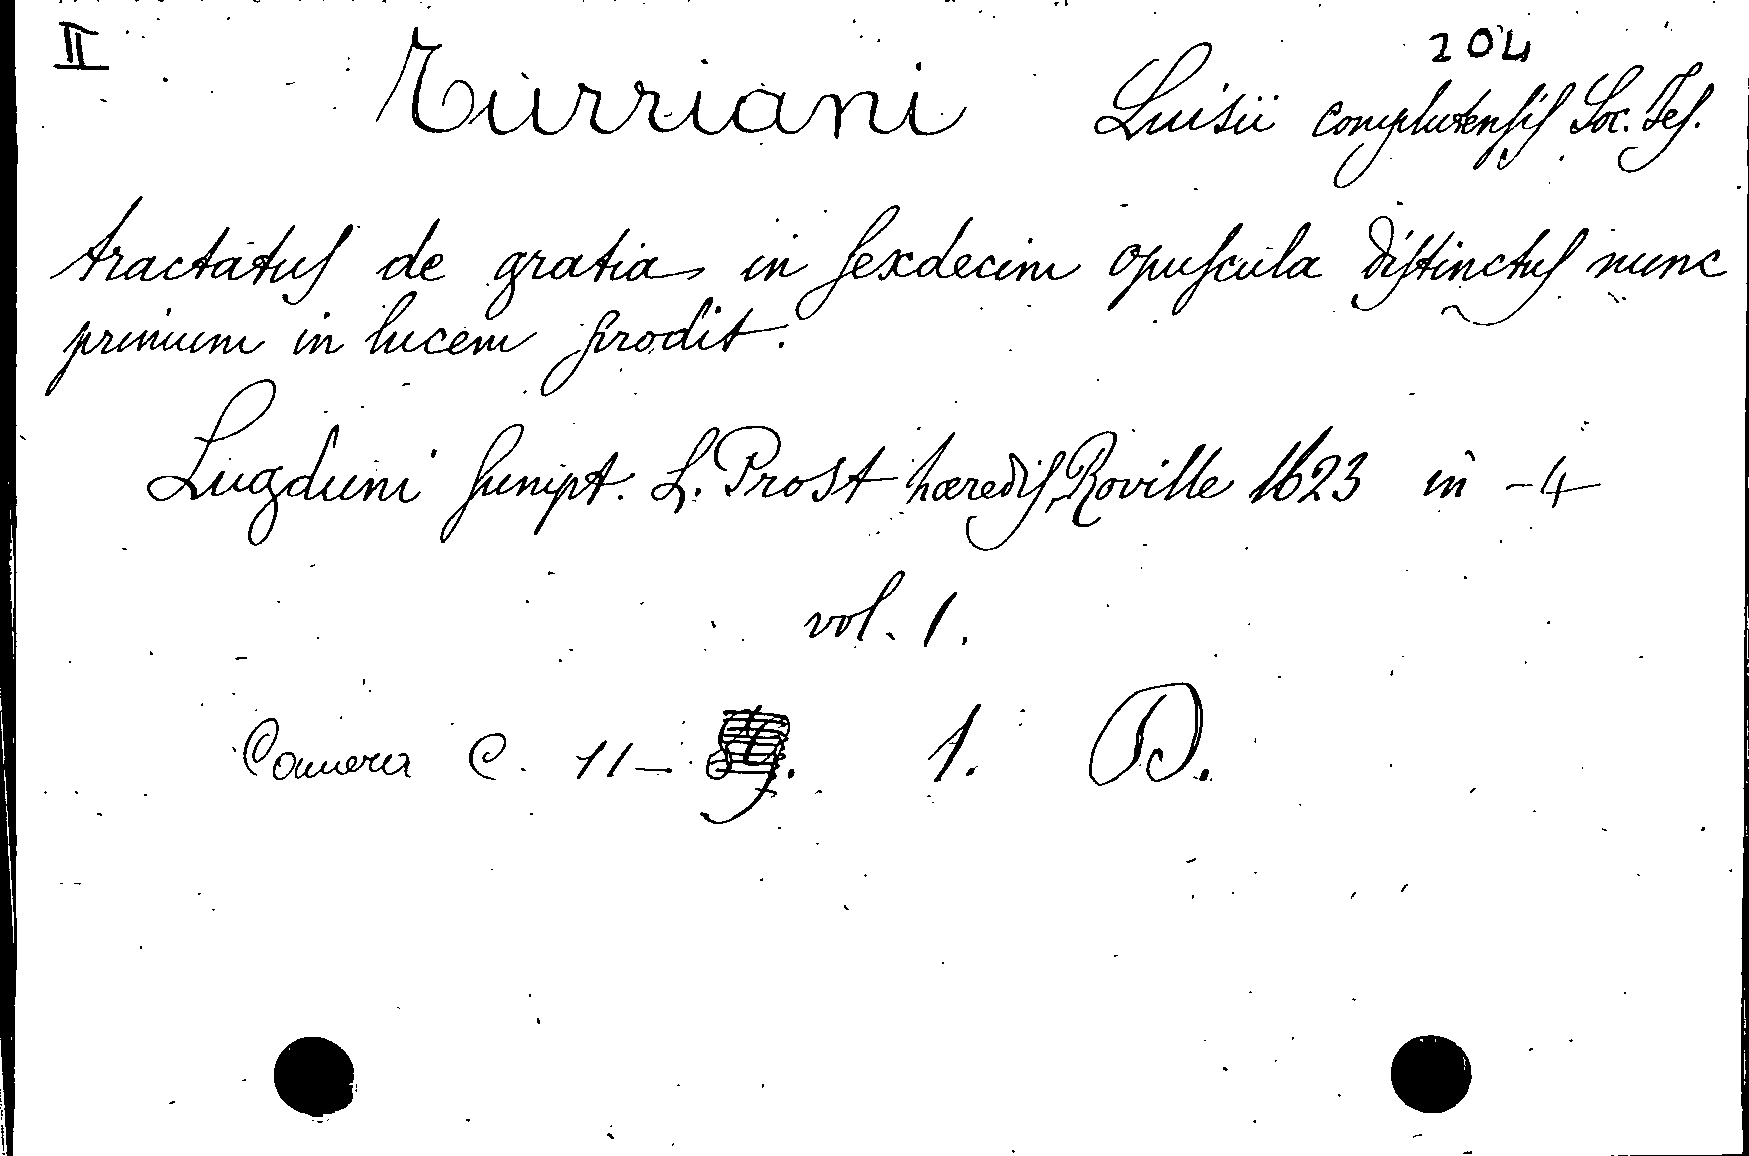 II 204
Turriani Luisii complutensis Soc. Jes.
tractatus de gratia in sexdecim opuscula distinctus nunc
primum in lucem prodit.
Lugduni sumpt. L. Prost hæredis Roville 1623 in -4
vol. 1.
Camera C. 11- 1. D.